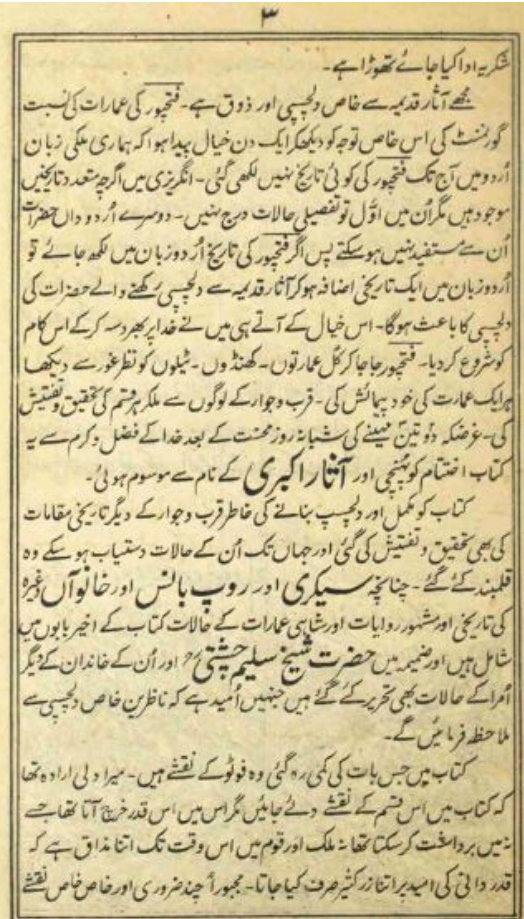 ۳
شکریہ ادا کیا جائے تھوڑا ہے۔
مجھے آثار قدیمہ سے خاص دلچسپی اور ذوق ہے۔ فتحپور کی عمارات کی نسبت
گورنمنٹ کی اس خاص توجہ کو دیکھکر ایک دن خیال پیدا ہوا کہ ہماری ملکی زبان
اُردو میں آج تک فتحپور کی کوئی تاریخ نہیں لکھی گئی۔ انگریزی میں اگرچہ متعدد تاریخیں
موجود ہیں مگر اُن میں اوّل تو تفصیلی حالات درج نہیں۔ دوسرے اُردو داں حضرات
اُن سے مستفید نہیں ہو سکتے پس اگر فتحپور کی تاریخ اُردو زبان میں لکھ جائے تو
اُردو زبان میں ایک تاریخی اضافہ ہو کر آثار قدیمہ سے دلچسپی رکھنے والے حضرات کی
دلچسپی کا باعث ہوگا۔ اس خیال کے آتے ہی میں نے خدا پر بھروسہ کر کے اس کام
کو شروع کر دیا۔ فتحپور جا جا کر کل عمارتوں۔ کھنڈوں۔ ٹیلوں کو نظر غور سے دیکھا
ہر ایک عمارت کی خود پیمائش کی۔ قرب و جوار کے لوگوں سے ملکر ہر قسم کی تحقیق و تفتیش
کی۔ غرضکہ دو تین مہینے کی شبانہ روز محنت کے بعد خدا کے فضل و کرم سے یہ
کتاب اختتام کو پہنچی اور آثار اکبری کے نام سے موسوم ہوئی۔
کتاب کو مکمل اور دلچسپ بنانے کی خاطر قرب و جوار کے دیگر تاریخی مقامات
کی بھی تحقیق و تفتیش کی گئی اور جہاں تک اُن کے حالات دستیاب ہو سکے وہ
قلمبند کئے گئے۔ چنانچہ سیکری اور روپ بانس اور خانوآں وغیرہ
کی تاریخی اور مشہور روایات اور شاہی عمارات کے حالات کتاب کے اخیر بابوں میں
شامل ہیں اور ضمیمہ میں حضرت شیخ سلیم چشتیؒ اور اُن کے خاندان کے دیگر
اُمرا کے حالات بھی تحریر کئے گئے ہیں جنہیں اُمید ہے کہ ناظرین خاص دلچسپی سے
ملاحظہ فرمائیں گے۔
کتاب میں جس بات کی کمی رہ گئی وہ فوٹو کے نقشے ہیں۔ میرا دلی ارادہ تھا
کہ کتاب میں اس قسم کے نقشے دئے جائیں مگر اس میں اس قدر خرچ آتا تھا جسے
نہ میں برداشت کر سکتا تھا نہ ملک اور قوم میں اس وقت تک اتنا مذاق ہے کہ
قدر دانی کی امید پر اتنا زر کثیر صرف کیا جاتا۔ مجبوراً چند ضروری اور خاص خاص نقشے